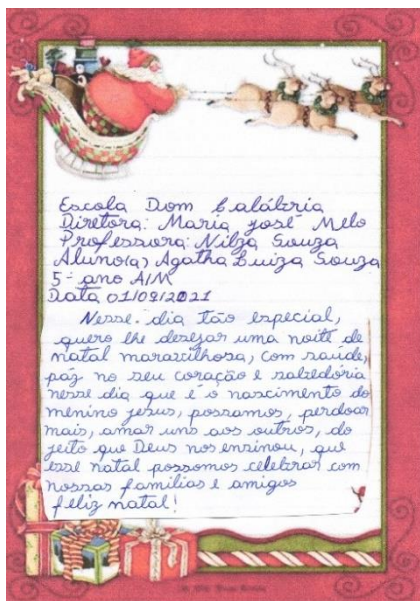 Escola Dom Calábria
Diretora: Maria José Melo
Professora: Nilza Souza
Aluno(a) Agatha Luiza Souza
5º ano A/M
Data 01/09/2021
Nesse dia tão especial,
quero lhe desejar uma noite de
natal maravilhosa, com saúde,
páz no seu coração e sabedória
nesse dia que é o nascimento do
menino jesus, possamos, perdoar
mais, amar uns aos outros, do
jeito que Deus nos ensinou, que
esse natal possomos celebrar com
nossas famílias e amigos
feliz natal!